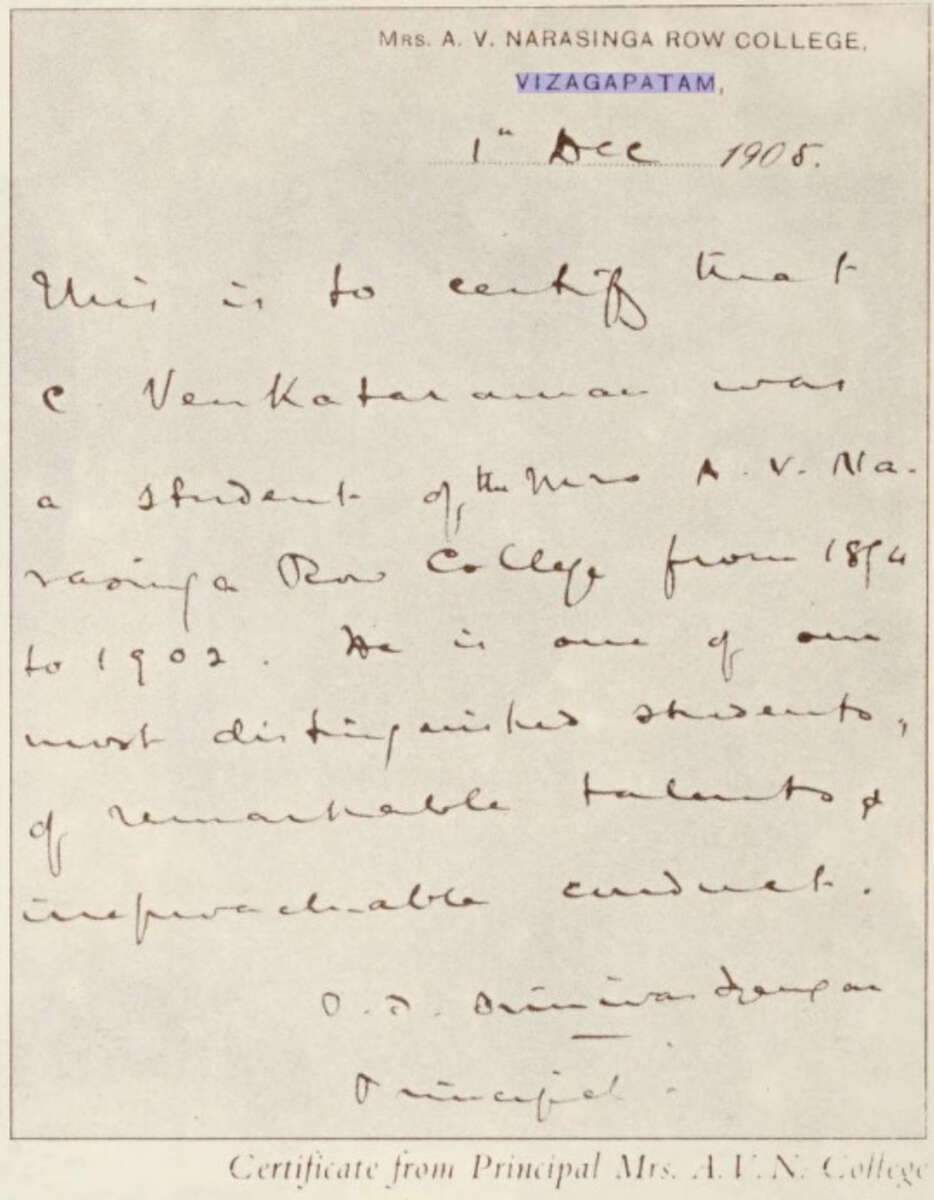 MRS. A. V. NARASINGA ROW COLLEGE,
VIZAGAPATAM,
1st Dec 1905.
This is to certify that
C Venkataraman was
a student of the Mrs A. V. Na-
rasinga Row College from 1894
to 1902. He is one of our
most distinguished students,
of remarkable talents &
irreproachable conduct.
P. T. Srinivas Iyengar
Principal.
Certificate from Principal Mrs. A.V.N. College